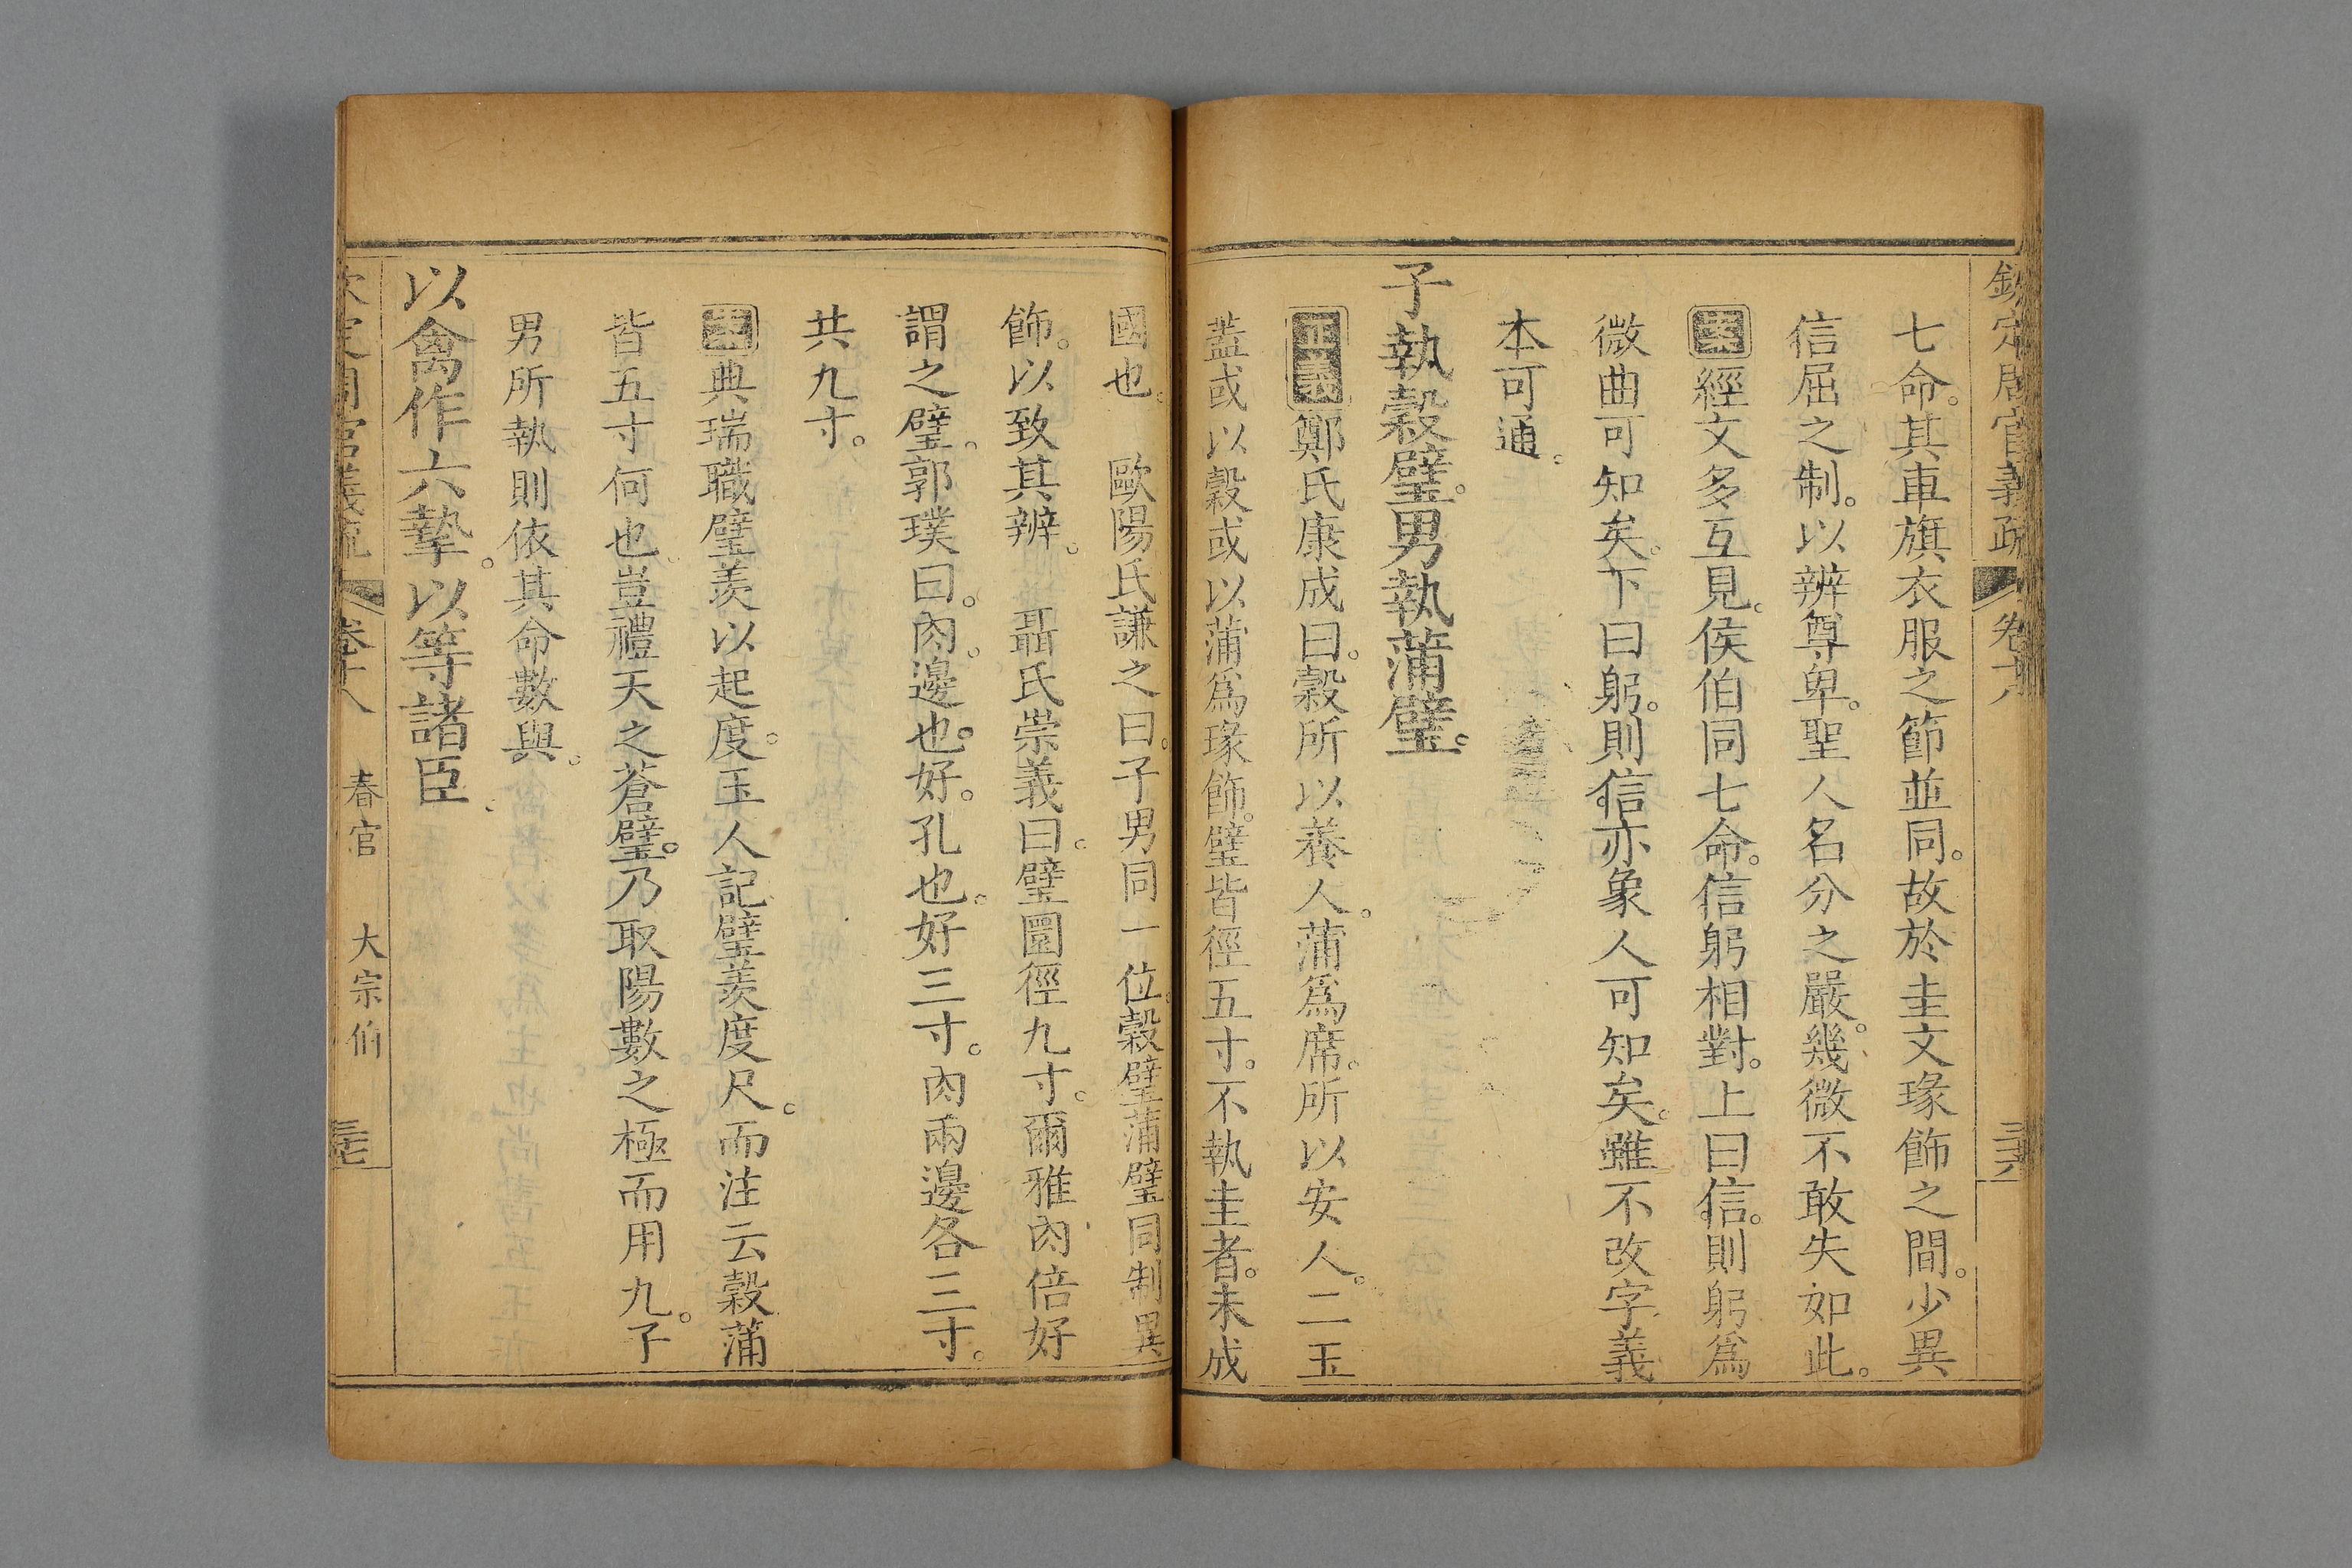 欽定周官義疏 卷十八 三六
七命。其車旗衣服之節並同。故於圭文瑑飾之間。少異
信屈之制。以辨尊卑。聖人名分之嚴。幾微不敢失如此。
案經文多互見。侯伯同七命。信躬相對。上曰信。則躬爲
微曲可知矣。下曰躬。則信亦象人可知矣。雖不改字義
本可通。
子執穀璧。男執蒲璧。
正義鄭氏康成曰。穀所以養人。蒲爲席。所以安人。二玉
蓋或以穀或以蒲爲瑑飾。璧皆徑五寸。不執圭者。未成
國也。 歐陽氏謙之曰。子男同一位。穀璧蒲璧同制異
飾。以致其辨。 聶氏崇義曰。璧圜徑九寸。爾雅肉倍好
謂之璧。郭璞曰。肉。邊也。好。孔也。好三寸。肉兩邊各三寸。
共九寸。
案典瑞職璧羨以起度。玉人記璧羨度尺。而注云穀蒲
皆五寸何也。豈禮天之蒼璧。乃取陽數之極而用九。子
男所執則依其命數與。
以禽作六摯。以等諸臣。
欽定周官義疏 卷十八 春官 大宗伯 三七